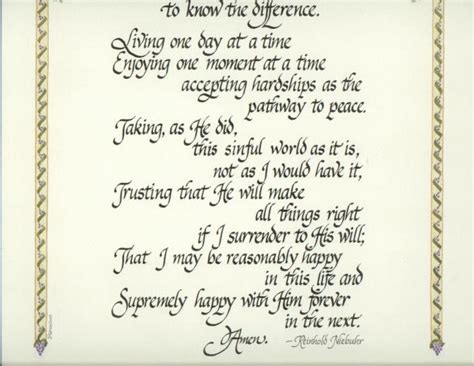 to know the difference.
Living one day at a time
Enjoying one moment at a time
accepting hardships as the
pathway to peace.
Taking, as He did,
this sinful world as it is,
not as I would have it,
Trusting that He will make
all things right
if I surrender to His will;
That I may be reasonably happy
in this life and
Supremely happy with Him forever
in the next.
Amen. —Reinhold Niebuhr